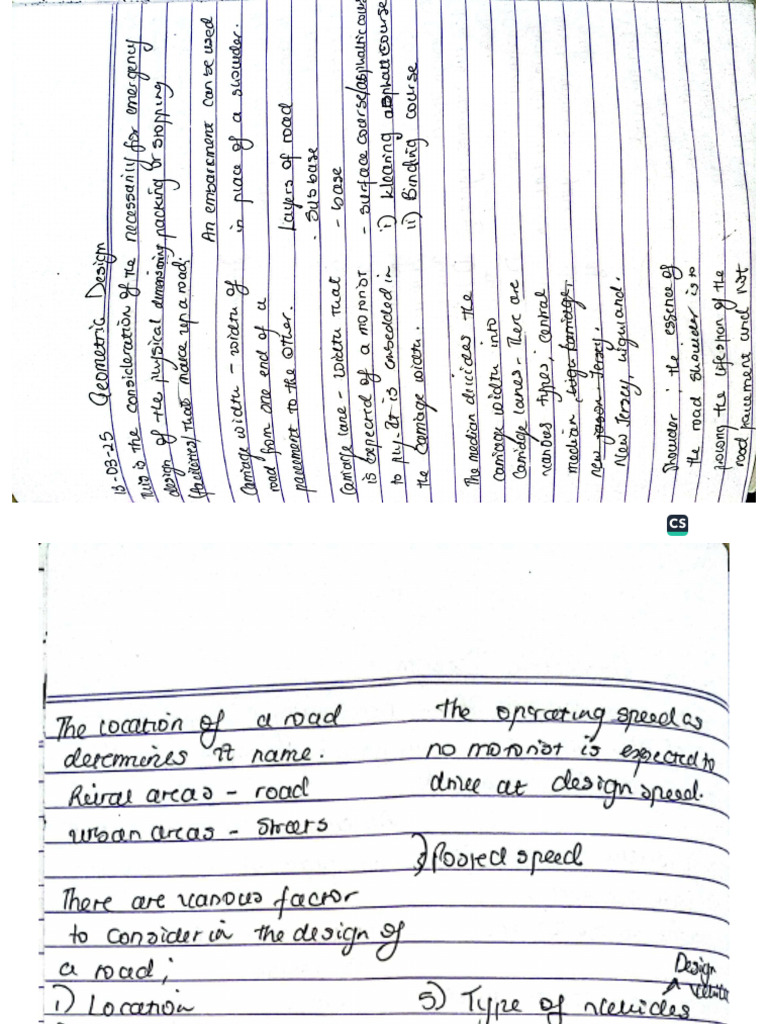 13-03-25 Geometric Design
This is the consideration of the
design of the physical dimensioning
(factories) that make up a road;
carriage width - width of
road from one end of a
pavement to the other.
Carriage lane - width that
is expected of a motorist
to ply. It is embedded in
the carriage width.
The median divides the
carriage width into
carriage lanes. There are
various types; central
median,
new Jersey,
New Jersey,
Shoulder; the essence of
the road shoulder is to
prolong the lifespan of the
road pavement and not
necessarily for emergency
packing or stopping
An embarkment can be used
in place of a shoulder.
Layers of road
- Subbase
- base
- surface course/asphaltic course
i) Wearing asphalt course
ii) Binding course
CS
The location of a road
determines it name.
Rural areas - road
urban areas - Streets
There are various factor
to consider in the design of
a road;
1) Location
the operating speed as
no motorist is expected to
drive at design speed.
Posted speed
Design
vehicle
5) Type of vehicles